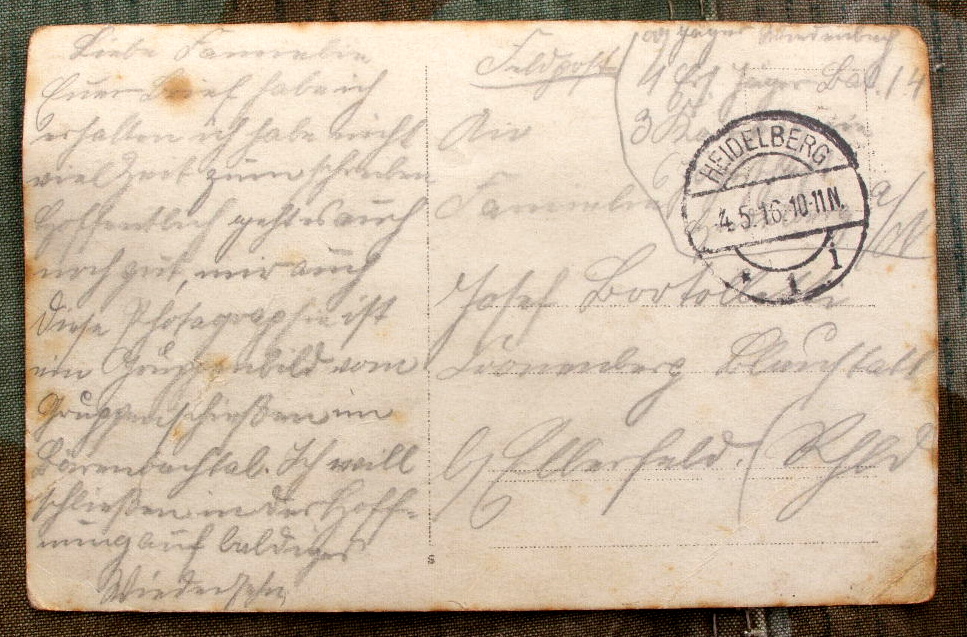 Liebe Familie
Euren Brief habe ich
erhalten ich habe nicht
viel Zeit zum schreiben
Hoffentlich geht es auch
noch gut, mir auch
Diese Photographie ist
ein Gruppenbild vom
Gruppenschießen im
Bärenbachtal. Ich will
schließen in der Hoff-
nung auf baldiges
Wiedersehn
Feldpost
Jäger
4 Ers. Jäger Bat. 14
3
An
Familie
Josef
b/ Elberfeld. (Rhld
HEIDELBERG
4.5.16.10-11N.
* 1 i
s